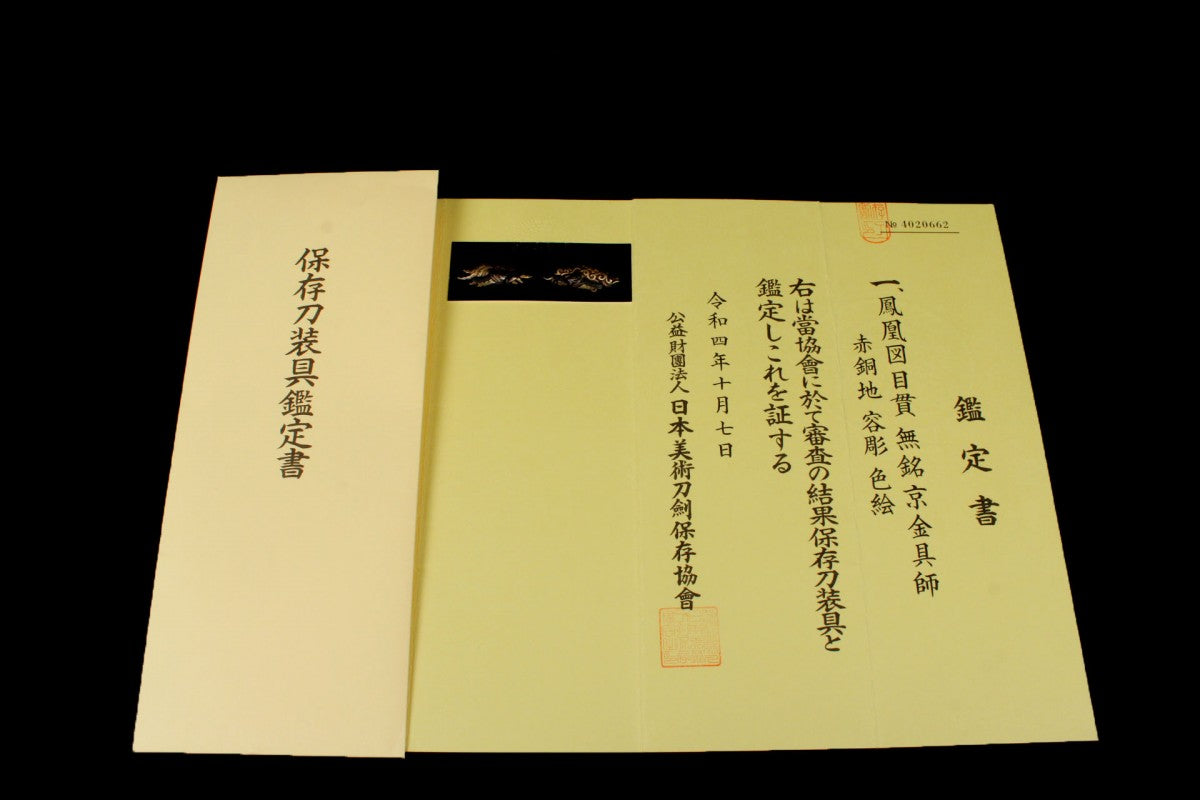 № 4020662
鑑定書
一、鳳凰図目貫 無銘 京金具師
赤銅地 容彫 色絵
右は當協會に於て審査の結果保存刀装具と
鑑定しこれを証する
令和四年十月七日
公益財團法人 日本美術刀劍保存協會
保存刀装具鑑定書